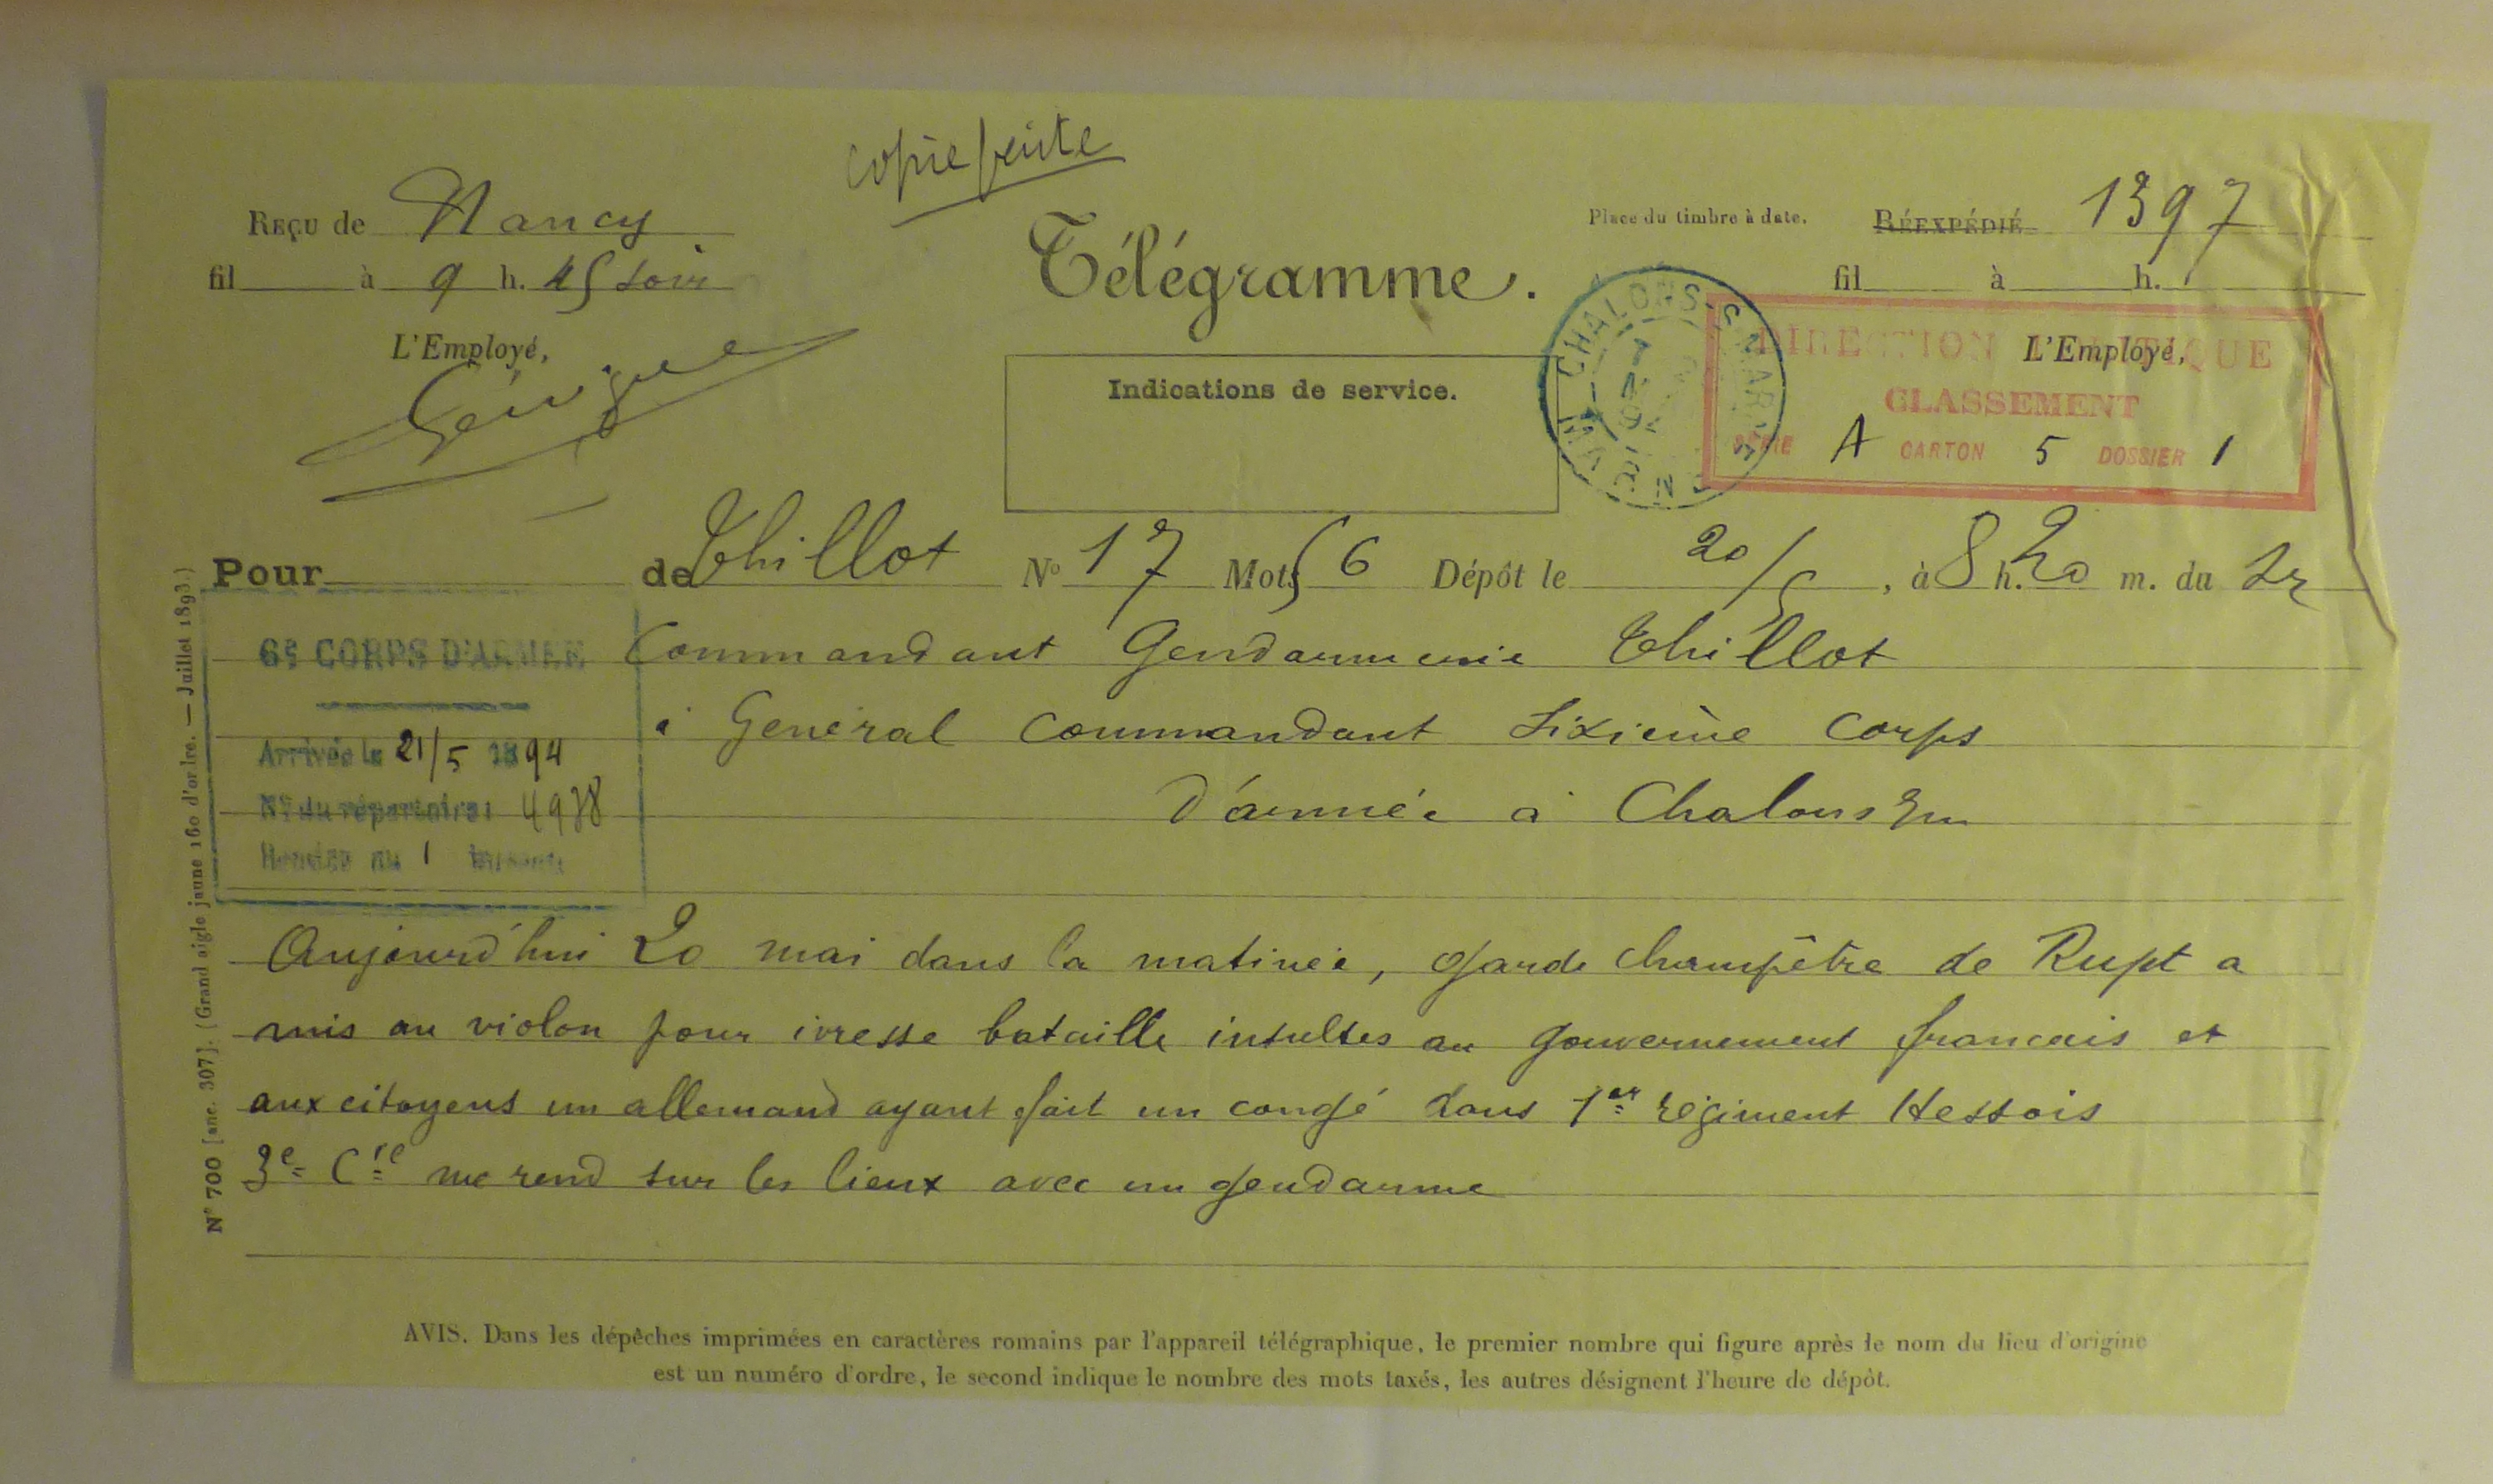 copie faite
Reçu de Nancy
fil à 9 h. 45 soir
L'Employé,
Télégramme.
Indications de service.
Place du timbre à date.
Réexpédié 1397
fil à h.
L'Employé,
CHALONS-S-MARNE
MARNE
DIRECTION POLITIQUE
CLASSEMENT
SÉRIE A CARTON 5 DOSSIER 1
Pour de Thillot N° 17 Mots 56 Dépôt le 20/5, à 8 h. 20 m. du Sr
6e CORPS D'ARMÉE
Arrivée le 21/5 1894
N° du répertoire: 4938
Remise au 1 bureau
Commandant Gendarmerie Thillot
à Général commandant sixième corps
d'armée à Chalons s/m
Aujourd'hui 20 mai dans la matinée, garde champêtre de Rupt a
mis au violon pour ivresse bataille insultes au gouvernement francais et
aux citoyens un allemand ayant fait un congé dans 1er régiment Hessois
3e Cie me rend sur les lieux avec un gendarme
N° 700 [anc. 307]. (Grand aigle jaune 160 d'ordre. — Juillet 1893.)
AVIS. Dans les dépêches imprimées en caractères romains par l'appareil télégraphique, le premier nombre qui figure après le nom du lieu d'origine
est un numéro d'ordre, le second indique le nombre des mots taxés, les autres désignent l'heure de dépôt.